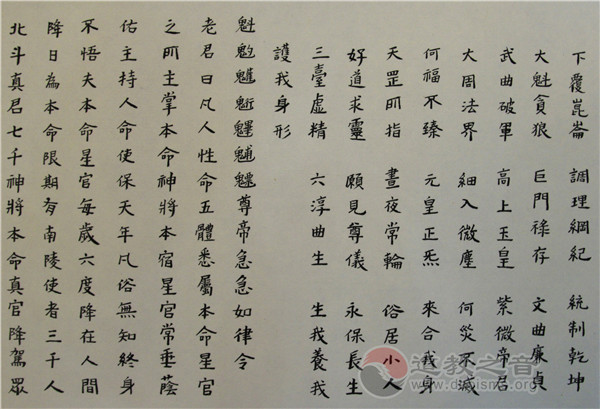 下覆崑崙 調理綱紀 統制乾坤
大魁貪狼 巨門祿存 文曲廉貞
武曲破軍 高上玉皇 紫微帝君
大周法界 細入微塵 何災不滅
何福不臻 元皇正炁 來合我身
天罡所指 晝夜常輪 俗居小人
好道求靈 願見尊儀 永保長生
三臺虛精 六淳曲生 生我養我
護我身形
魁 尊帝急急如律令
老君曰凡人性命五體悉屬本命星官
之所主掌本命神將本宿星官常垂蔭
佑主持人命使保天年凡俗無知終身
不悟夫本命星官每歲六度降在人間
降日為本命限期有南陵使者三千人
北斗真君七千神將本命真官降駕眾
道教之音